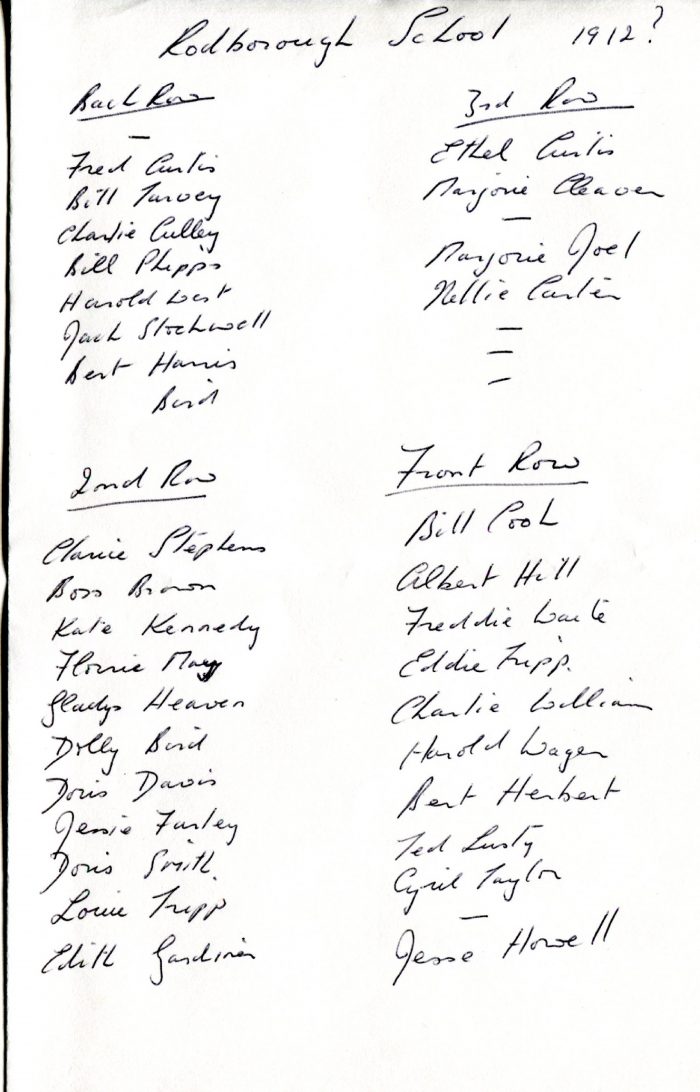 Rodborough School 1912?
Back Row
—
Fred Curtis
Bill Turvey
Charlie Culley
Bill Phipps
Harold West
Jack Stockwell
Bert Harris
Bird
2nd Row
Clarrie Stephens
Boss Brown
Kate Kennedy
Florrie May
Gladys Heaven
Dolly Bird
Doris Davis
Jessie Furley
Doris Smith.
Louie Tripp
Edith Gardiner
3rd Row
Ethel Curtis
Marjorie Cleaver
—
Marjorie Joel
Nellie Carter
—
—
—
Front Row
Bill Cook
Albert Hill
Freddie Waite
Eddie Tripp.
Charlie William
Harold Wager
Bert Herbert
Ted Lusty
Cyril Taylor
—
Jesse Howell